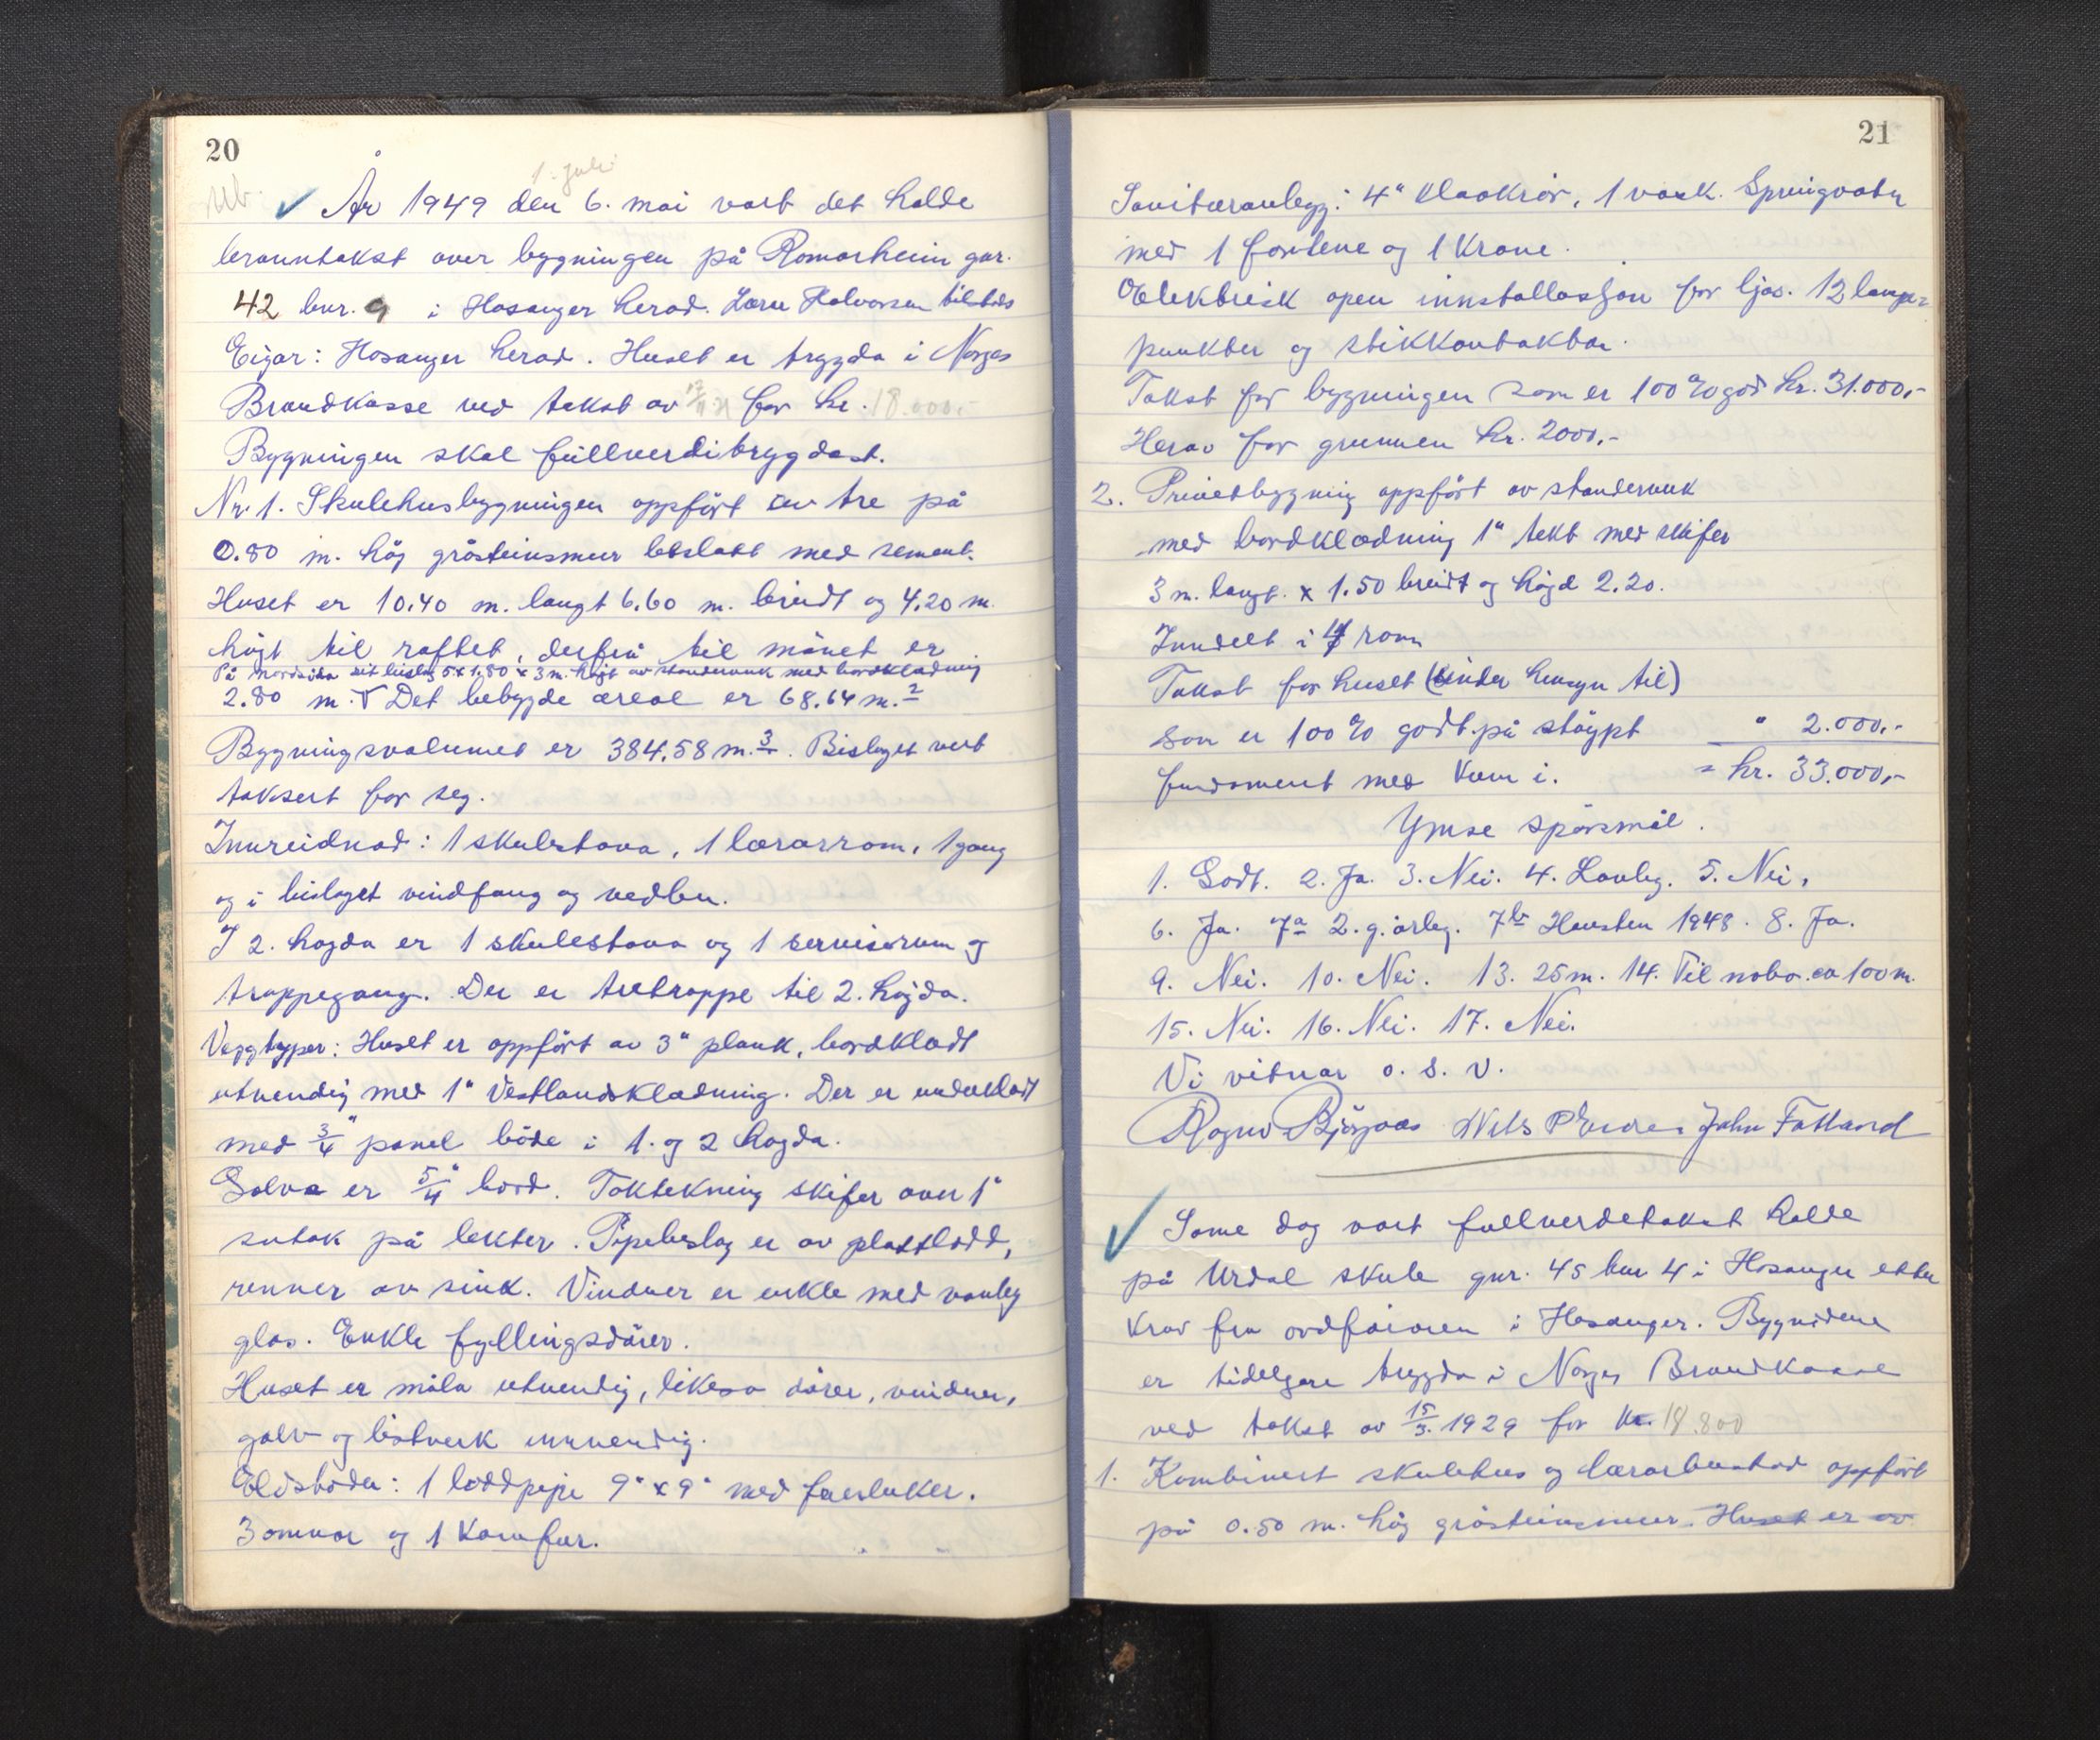 20
1. juli
År 1949 den 6. mai vart det halde
branntakst over bygningen på Romarheim gnr.
42 bnr. 9 i Hosanger herad. Lærer Halvorsen tilstades
Eigar: Hosanger herad. Huset er trygda i Norges
Brandkasse ved takst av 12/11 for kr. 18.000,-
Bygningen skal fullverditryggdast.
Nr. 1. Skulehusbygningen oppfört av tre på
0.80 m. höy gråsteinsmur beslått med sement.
Huset er 10.40 m. langt 6.60 m. breidt og 4.20 m.
högt til raftet, derfrå til mönet er
På nordsida eit bislag 5 x 1.80 x 3 m. högt av standerverk med bordkledning
2.80 m. Det bebygde areal er 68.64 m.2
Bygningsvolumet er 384.58 m.3. Bislaget vert
taksert for seg.
Innreidnad: 1 skulestova, 1 lærarrom, 1 gang
og i bislaget vindfang og vedbu.
I 2. högda er 1 skulestova og 1 servisrum og
trappegang. Der er tretrappe til 2. högda.
Veggtyper: Huset er oppfört av 3" plank, bordkledt
utvendig med 1" Vestlandskledning. Der er underkledt
med 3/4" panel både i 1. og 2 högda.
Golva er 5/4" bord. Taktekning skifer over 1"
sutak på lekter. Pipebeslag er av plattlodd,
renner av sink. Vinduer er enkle med vanleg
glas. Enkle fyllingsdörer.
Huset er måla utvendig, likeso dörer, vinduer,
golv og listverk innvendig.
Eldstader: 1 loddpipe 9" x 9" med farluker.
3 omnar og 1 komfur.
21
Sanitæranlegg: 4" kloakrör, 1 vask. Springvatn
med 1 fontene og 1 krane.
Elektrisk open innstallasjon for ljos. 12 lampe-
punkter og stikkontaktar.
Takst for bygningen som er 100 % god kr. 31.000,-
Herav for grunnen kr. 2000,-
2. Privetbygning oppfört av standerverk
med bordkledning 1" tekt med skifer
3 m. langt x 1.50 breidt og högd 2.20.
Inndelt i 4 rom
Takst for huset (under hensyn til)
som er 100 % godt på stöypt " 2.000,-
fundament med kum i. = kr. 33.000,-
Ymse spörsmål.
1. Godt. 2. Ja. 3. Nei. 4. Lovleg. 5. Nei,
6. Ja. 7a 2. g. årleg. 7b Hausten 1948. 8. Ja.
9. Nei. 10. Nei. 13. 25 m. 14. Til nabo ca 100 m.
15. Nei. 16. Nei. 17. Nei.
Vi vitnar o. s. v.
Nils John Fatland
Same dag vart fullverdetakst halde
på Urdal skule gnr. 45 bnr 4 i Hosanger etter
krav fra ordföraren i Hosanger. Bygnidene
er tidelgere trygda i Norges Brandkasse
ved takst av 15/3. 1929 for kr. 18.800
1. Kombinert skulehus og lærarbustad oppfört
på 0.50 m. höy gråsteinsmur. Huset er av